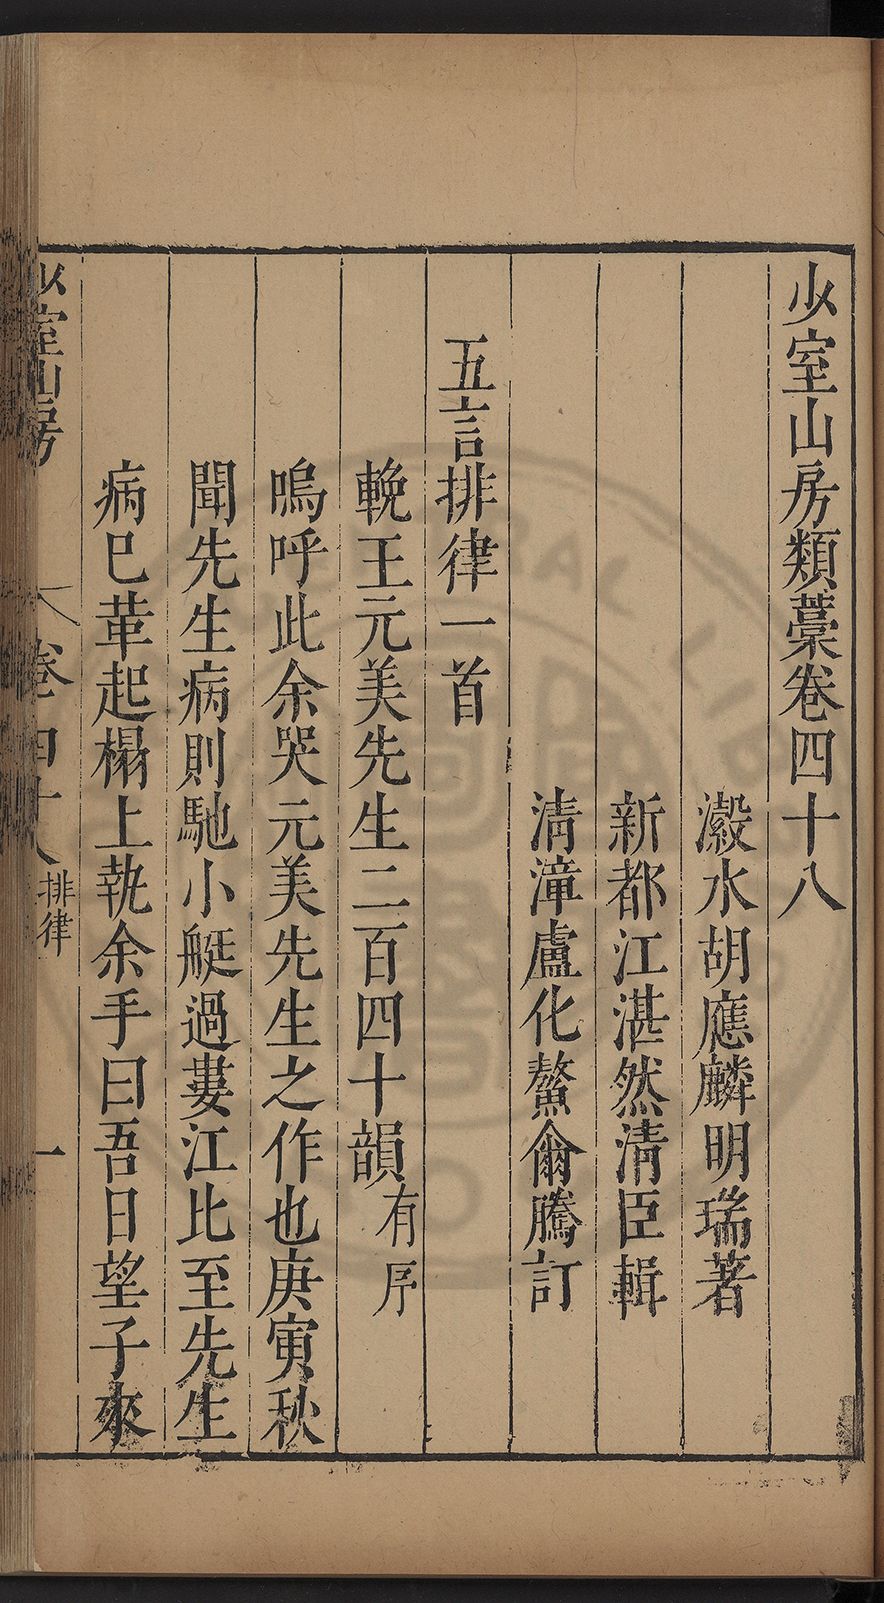 少室山房類藁卷四十八
瀫水胡應麟明瑞著
新都江湛然清臣輯
清漳盧化鰲爾騰訂
五言排律一首
輓王元美先生二百四十韻有序
嗚呼此余哭元美先生之作也庚寅秋
聞先生病則馳小艇過婁江比至先生
病巳革起榻上執余手曰吾日望子來
少室山房
卷四十八
排律
一